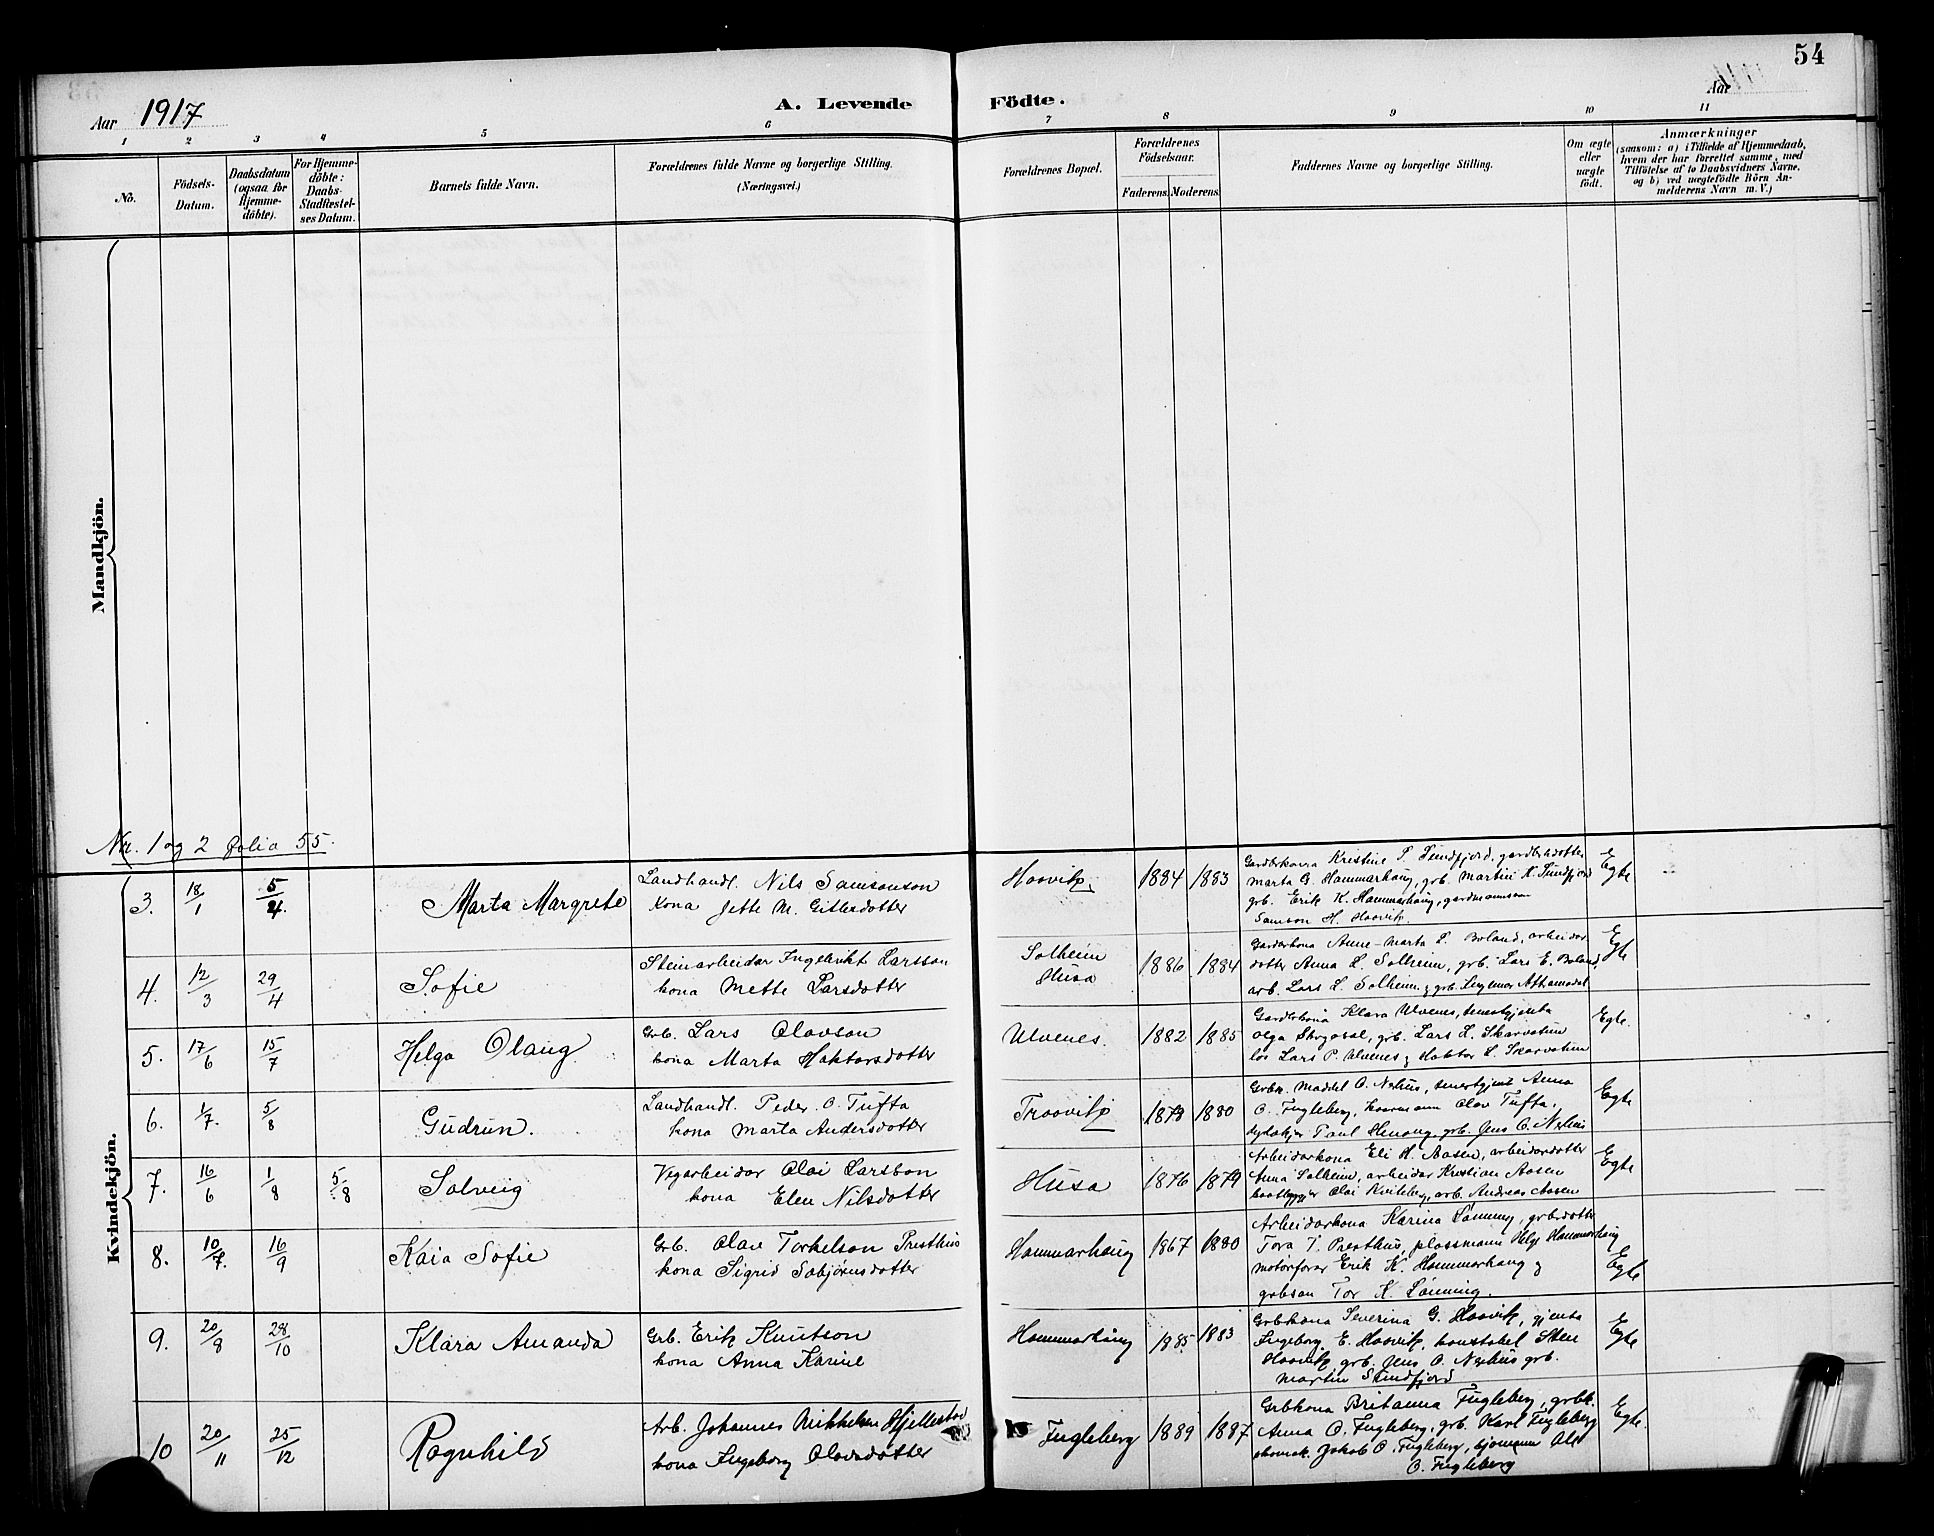 54
Aar 1917 A. Levende Födte. Aar
1 2 3 4 5 6 7 8 9 10 11
No.
Födsels-
Datum.
Daabsdatum
(ogsaa for
Hjemme-
döbte).
For Hjemme-
döbte:
Daabs-
Stadfæstel-
ses Datum.
Barnets fulde Navn.
Forældrenes fulde Navne og borgerlige Stilling.
(Næringsvei.)
Forældrenes Bopæl.
Forældrenes
Födselsaar.
Faderens. Moderens.
Faddernes Navne og borgerlige Stilling.
Om ægte
eller
uægte
födt.
Anmærkninger
(saasom: a) i Tilfælde af Hjemmedaab,
hvem der har forrettet samme, med
Tilföielse af to Daabsvidners Navne,
og b) ved uægtefödte Börn An-
melderens Navn m. V.)
Mandkjön.
Nr. 1 og 2 folio 55.
Kvindekjön.
3. 18/1 5/4. Marta Margrete
Landhandl. Nils Samsonson
Kona Jette M. Gitlesdotter
Haavik. 1884 1883
Garderkona Kristine P. Sundfjord, garderdotter
Marta G. Hammarhaug, grb. Martin K. Sundfjord
grb. Erik K. Hammarhaug, gardmannsson
Samson H. Haavik.
Egte
4. 12/3 29/4 Sofie
Steinarbeidar Ingebrikt Larsson
kona Mette Larsdotter
Solheim
Husa
1886 1884
Garderkona Anne-Marta L. Boland, arbeidar
dotter Anna L. Solheim, grb. Lars E. Boland,
arb. Lars L. Solheim og grb.
Egte
5. 17/6 15/7 Helga Olaug
Grb. Lars Olavson
kona Marta Haktorsdotter
Ulvenes. 1882 1885
Garderkona Klara Ulvenes, tenestgjenta
Olga, grb. Lars L. Skarvatun
Lars P. Ulvenes og Haktor L. Skarvatun
Egte.
6. 1/7. 5/8 Gudrun.
Landhandl. Peder O. Tufta
kona Marta Andersdotter
Traavik 1879 1880
Grbk. Maddel O. Nerhus, tenestgjent Anna
O. Fugleberg, Olav Tufta,
Paul, grb. Jens O. Nerhus
Egte
7. 16/6 1/8 5/8 Solveig
Vegarbeidar Olai Larsson
kona Elen Nilsdotter
Husa 1876 1879
Arbeidarkona Eli H. Aasen, arbeidardotter
Anna Solheim, arbeidar Kristian Aasen
baatbyggjer Olai Kviteberg, arb. Andreas Aasen
Egte
8. 10/7. 16/9 Kaia Sofie
Grb. Olav Torkelson Presthus
kona Sigrid Sabjørnsdotter
Hammarhaug 1867 1880
Arbeidarkona Karina Lønning, grbsdotter
Tora T. Presthus, plassmann Helge Hammarhaug
motorførar Erik K. Hammarhaug og
grbson Tor K. Lønning.
Egte
9. 20/8 28/10 Klara Amanda
Grb. Erik Knutson
kona Anna Karine
Hammarhaug 1885 1883
Grbkona Severina G. Haavik, gjenta
Ingeborg E. Haavik, konstabel Sten
Haavik, grb. Jens O. Nerhus grb.
Martin Sundfjord
Egte
10 20/11 25/12 Ragnhild
Arb. Johannes Mikkelsen Hjellestad
kona Ingeborg Olavsdotter
Fugleberg 1889 1887
Grbkona Britanna Fugleberg, grbk.
Anna O. Fugleberg, grb. Karl Fugleberg
skomak. Jakob O. Fugleberg, sjømann
O. Fugleberg
Egte.